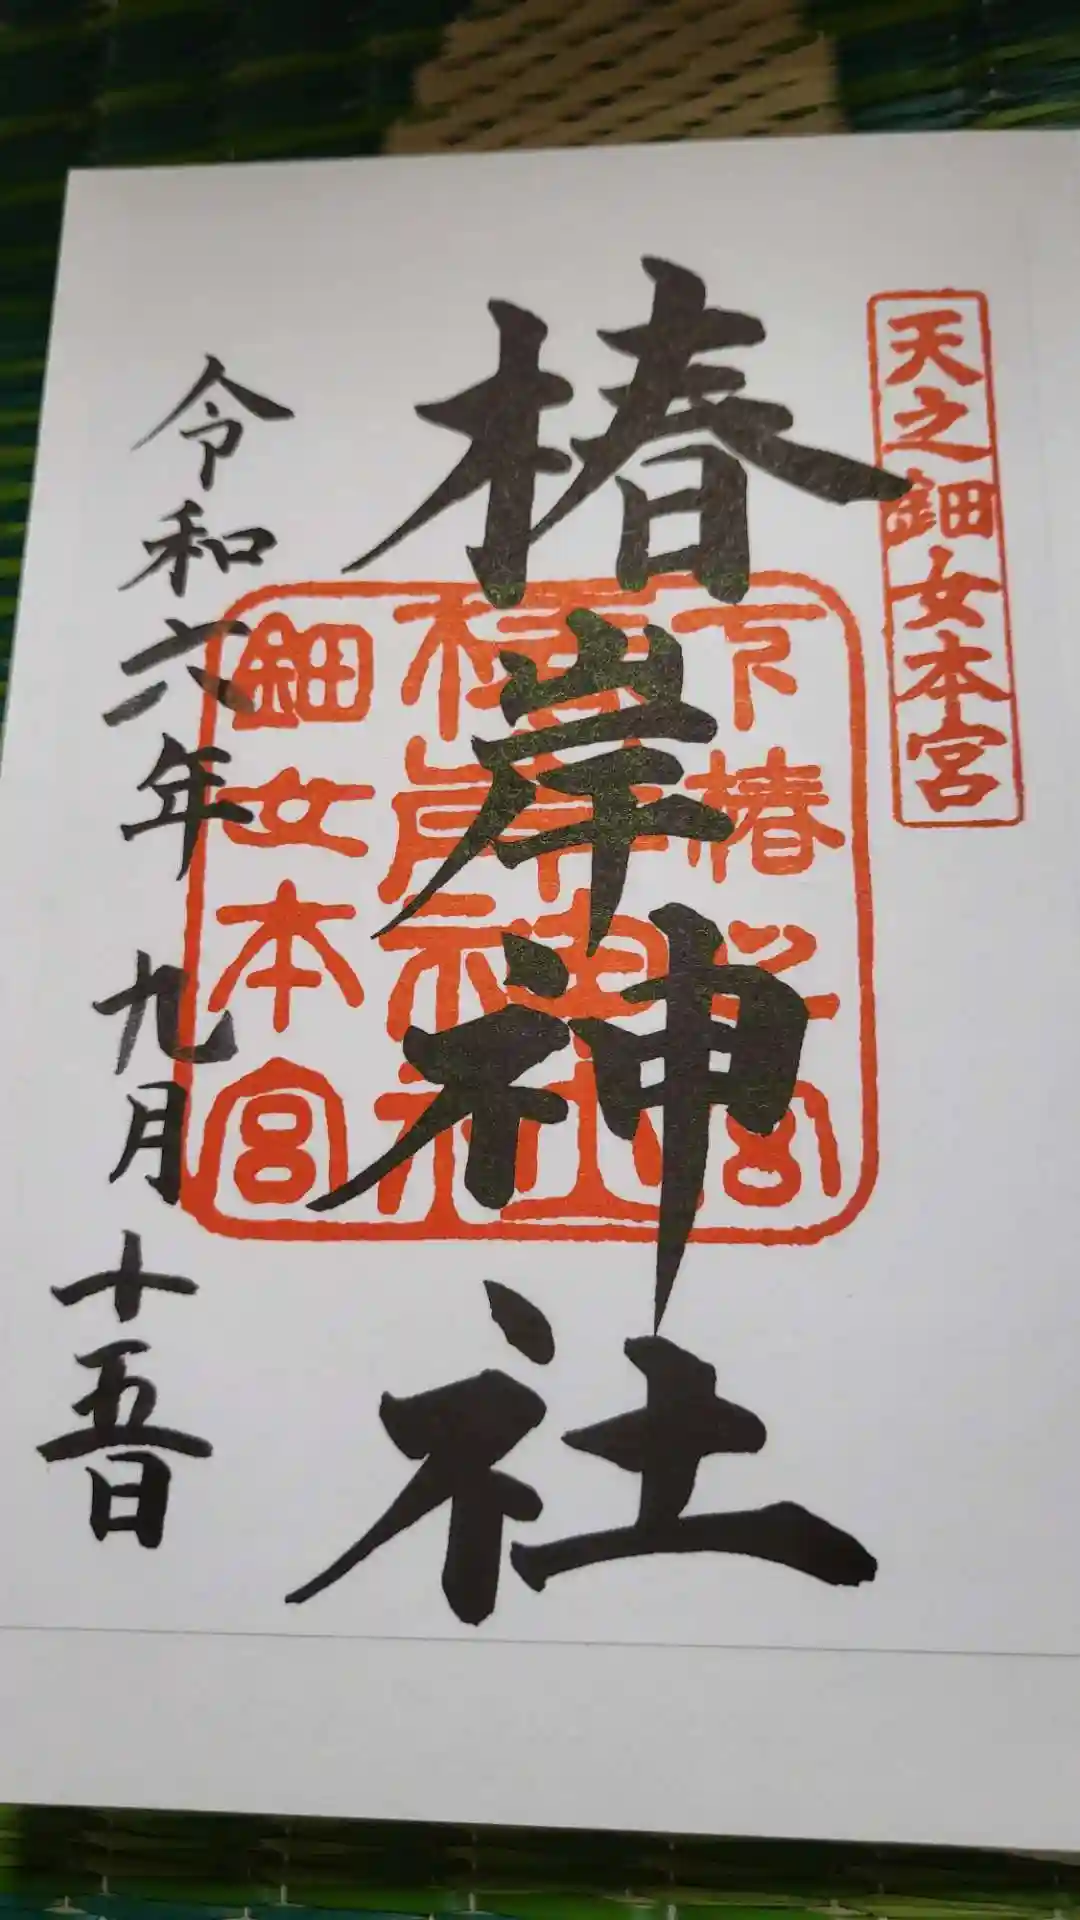 天之鈿女本宮
椿岸神社
下椿之宮
椿岸神社
鈿女本宮
令和六年九月十五日